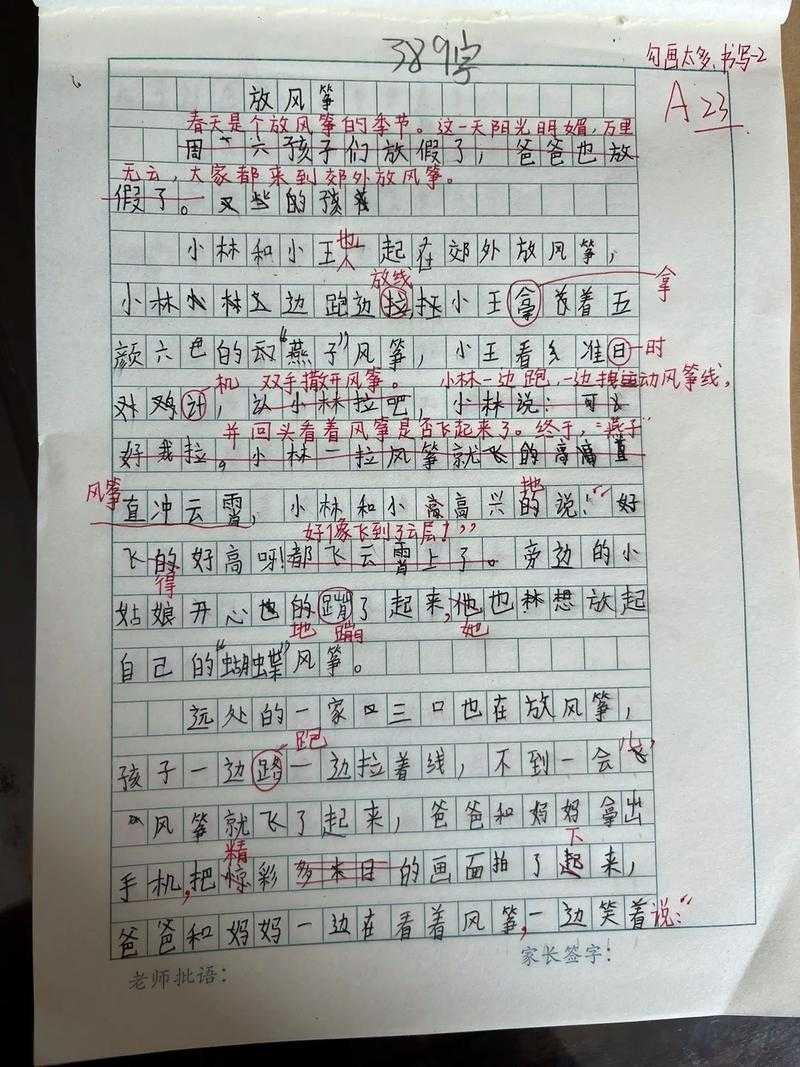 389字
勾画太多,书写-2
A 23
放风筝
春天是个放风筝的季节。这一天阳光明媚,万里
周六孩子们放假了,爸爸也放
无云,大家都来到郊外放风筝。
假了。 的孩
小林和小王也一起在郊外放风筝,
放线
拿
小林 边跑边拉,小王拿着五
颜六色的“燕子”风筝,小王看 准日
时
机 双手撒开风筝。 小林一边跑,一边 动风筝线,
对 计,认小林拉吧,小林说:可以
并回头看着风筝是否飞起来了。终于,“燕子”
好我拉。小林一拉风筝就飞的高高直
风筝
直冲云霄,小林和小 高高兴的说:“好
地
好像飞到了云层!”
飞的好高呀!都飞云霄上了。旁边的小
得
姑娘开心的蹦了起来,她也想放起
地 蹦 她
自己的“蝴蝶”风筝。
远处的一家三口也在放风筝,
跑
孩子一边路一边拉着线,不到一会“飞”
风筝就飞了起来,爸爸和妈妈拿出
精 下
手机,把惊彩 的画面拍了起来,
爸爸和妈妈一边在看着风筝,一边笑着说:“
老师批语:
家长签字: